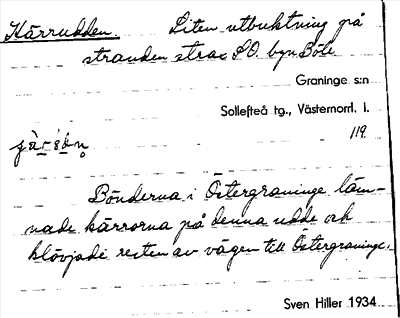 Kärrudden. Liten utbuktning på
stranden strax S.O. byn Böle.
Graninge s:n
Sollefteå tg., Västernorrl. l.
119.
Bönderna i Östergraninge läm-
nade kärrorna på denna udde och
klövjade resten av vägen till Östergraninge.
Sven Hiller 1934